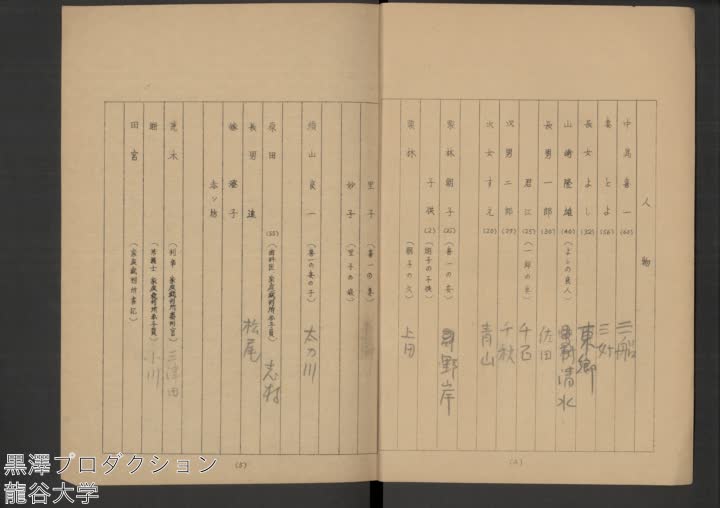 人物
中島喜一(60) 三船
妻とよ(56) 三好
長女よし(32) 東郷
山崎隆雄(40)(よしの良人) 清水
長男一郎(30) 佐田
君江(25)(一郎の妻) 千石
次男二郎(25) 千秋
次女すえ(20) 青山
栗林朝子(25)(喜一の妾) 根岸
子供(2)(朝子の子供)
栗林(朝子の父) 上田
(4)
里子(喜一の妾)
妙子(里子の娘)
須山良一(喜一の妾の子) 太刀川
原田(55)(歯科医 家庭裁判所参与員) 志村
長男進 松尾
嫁澄子
赤ッ坊
荒木(判事 家庭裁判所審判官) 三津田
堀(弁護士 家庭裁判所参与員) 小川
田宮(家庭裁判所書記)
(5)
黒澤プロダクション
龍谷大学